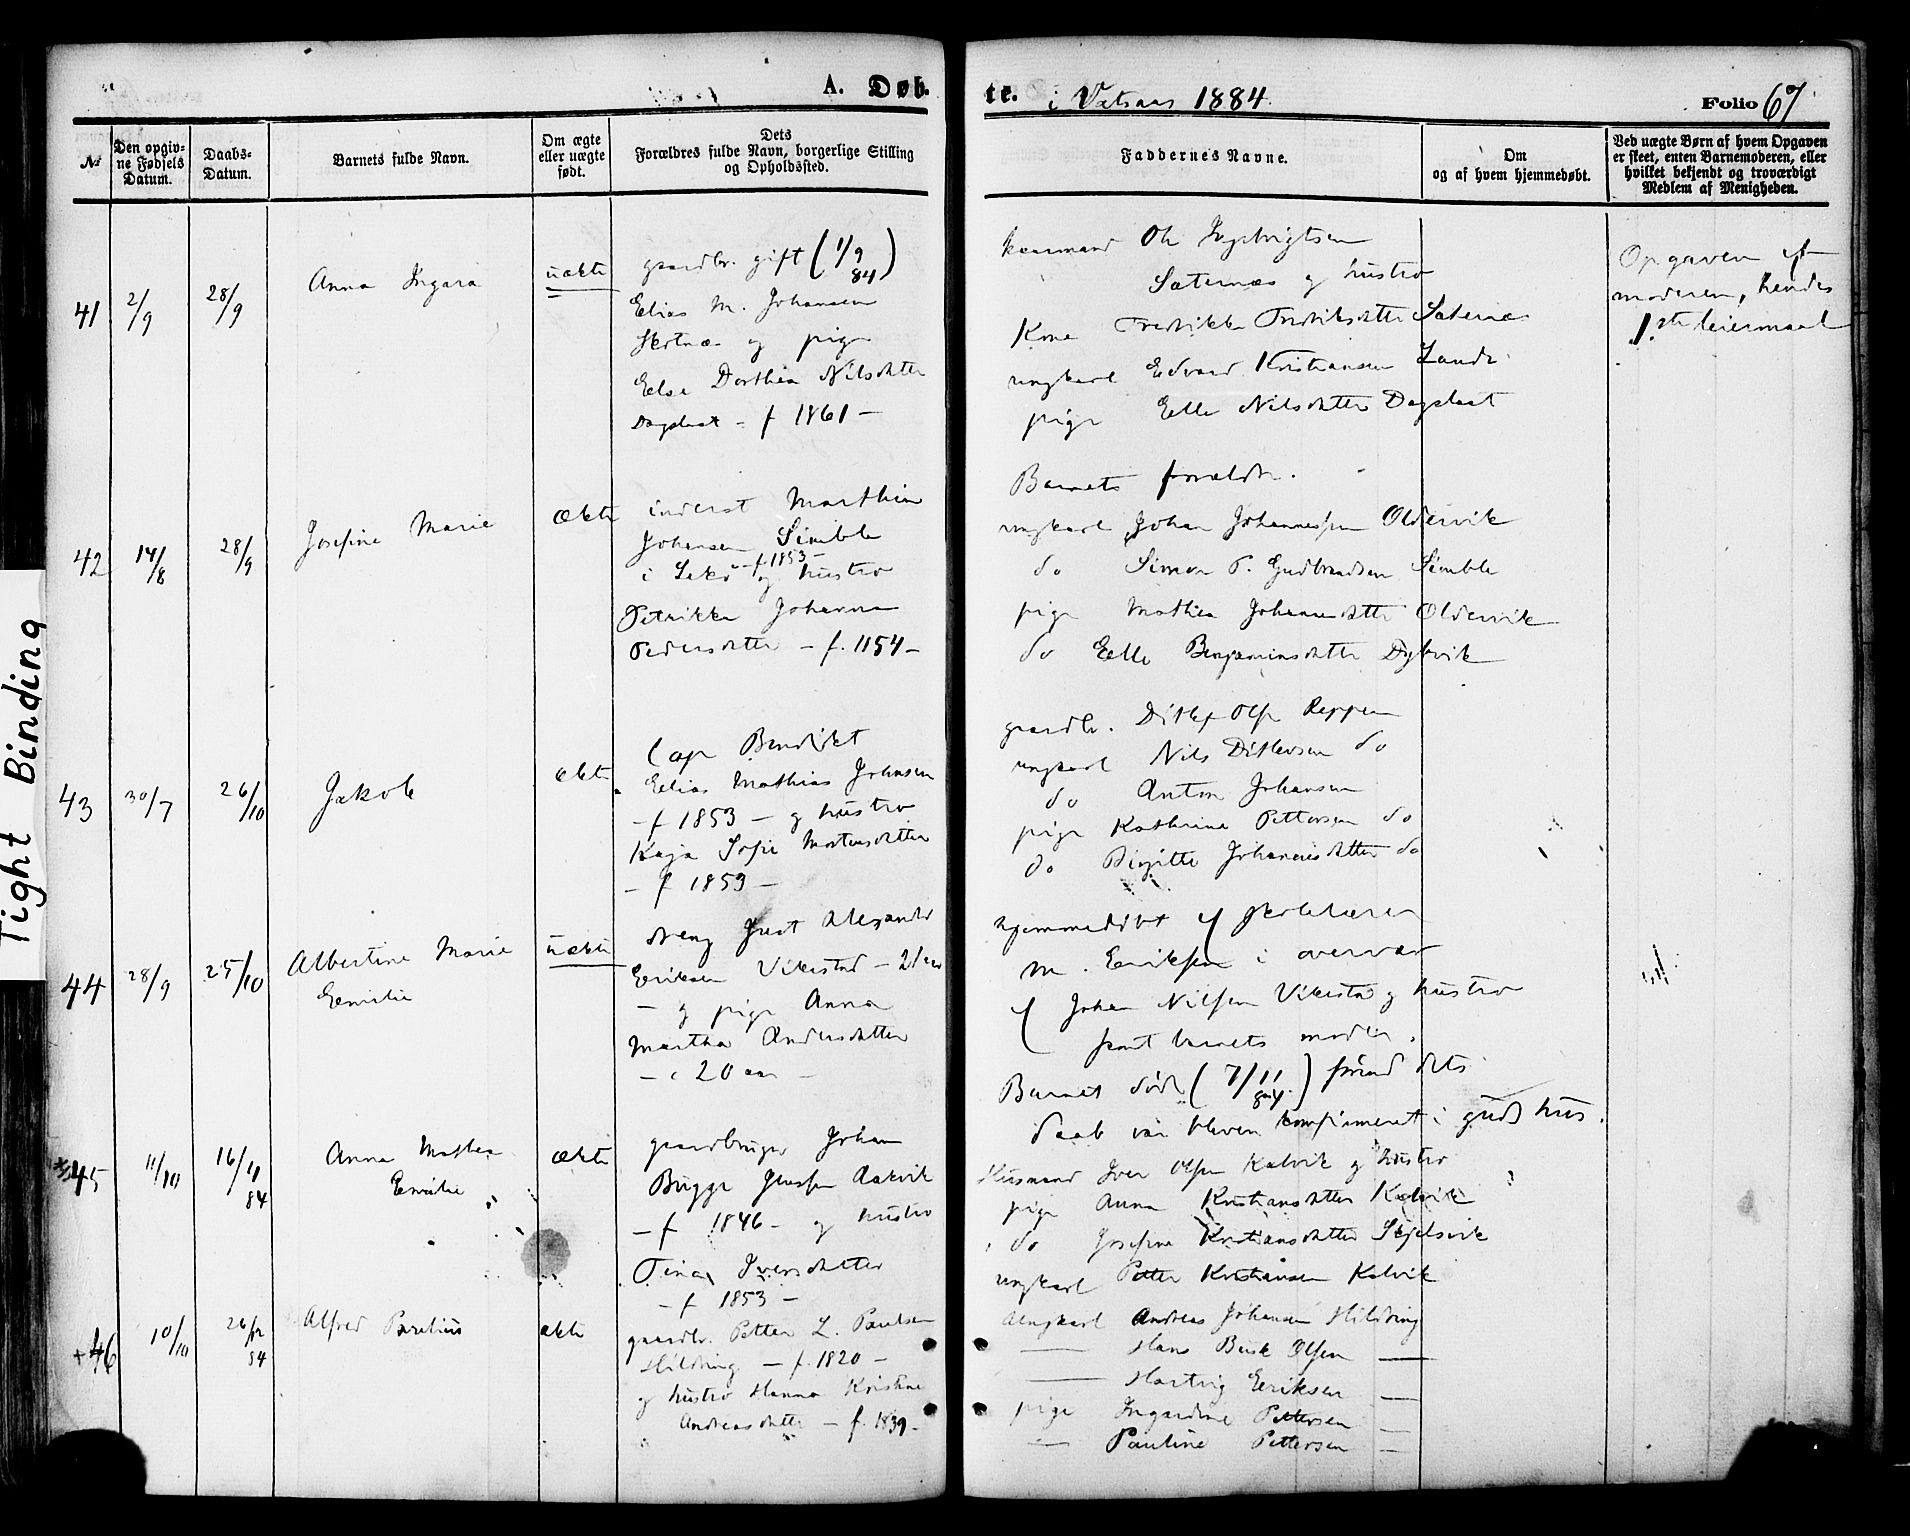 A. Døb.
te. i Vatsaas 1884
Folio 67
№
Den opgivne Fødsels Datum.
Daabs-Datum.
Barnets fulde Navn.
Om ægte eller uægte født.
Dets
Forældres fulde Navn, borgerlige Stilling og Opholdssted.
Faddernes Navne.
Om
og af hvem hjemmedøbt.
Ved uægte Børn af hvem Opgaven er skeet, enten Barnemoderen, eller hvilket bekjendt og troværdigt Medlem af Menigheden.
41 2/9 28/9 Anna Ingara uækte
gaardbr. gift (1/9 84)
Elias M. Johansen
og pige
Else Dorthea Nilsdatter
Dagslaat - f 1861 -
Ole
Sæternæs og hustro
Kone Fredrikke Fredriksdatter
ungkarl Edvard Kristiansen
pige Elle Nilsdatter Dagslaat
Opgaven af
moderen, hendes
1ste leiermaal
42 14/8 28/9 Josefine Marie ækte
inderst Marthin
Johansen Simble
i Lekø - f 1853 - og hustro
Petrikke Johanna
Pedersdatter - f. 1154 -
Barnets forældre.
ungkarl Johan Johannessen Oldervik
do Simon P. Gudbrandsen Simble
pige Mathea Johannesdatter Oldervik
do Elle Benjaminsdatter Dybvik
43 30/7 26/10 Jakob ekte
Lap Bendikt
Elias Mathias Johnsen
- f 1853 - og hustro
Kaja Sofie Mortensdatter
- f 1853 -
gaardbr. Ditlef Olsen Reppen
ungkarl Nils Ditlevsen do
do Anton Johansen
pige Kathrine Pettersen do
do Birgitte Johannesdatter do
44 28/9 25/10 Albertine Marie
Eemilie
uækte
dreng Just Alexander
Eeriksen Vikestad -
- og pige Anna
Martha Andersdatter
- 20 aar -
hjemmedøbt af skolelærer
M. Eeriksen i overvær
af Johan Nilssen Vikestad og hustro
samt barnets moder.
Barnet døde (7/11 84) førend dets
daab var bleven konfirmeret i guds hus.
45 11/10 16/11 84 Anna Mathea
Eemilie
ækte
gaardbruger Johan
Brygge Aakvik
- f 1846 - og hustro
Tina Iversdatter
- f 1853 -
Husmand Iver Olsen Kalvik og hustro
pige Anna Kristiansdatter Kalvik
do Josefine Kristiansdatter Skjelsvik
ungkarl Petter Kristiansen Kalvik
46 10/10 26/12 84 Alfred Parelius ækte
gaardbr. Petter L. Paulsen
Hildring - f. 1820 -
og hustro Hanna Kristine
Andreasdatter - f. 1839 -
Ungkarl Andreas Johansen Hildring
— Hans Busk Olsen —
— Hartvig Eeriksen —
pige Ingardine Pettersen —
— Pauline Pettersen —
Tight Binding